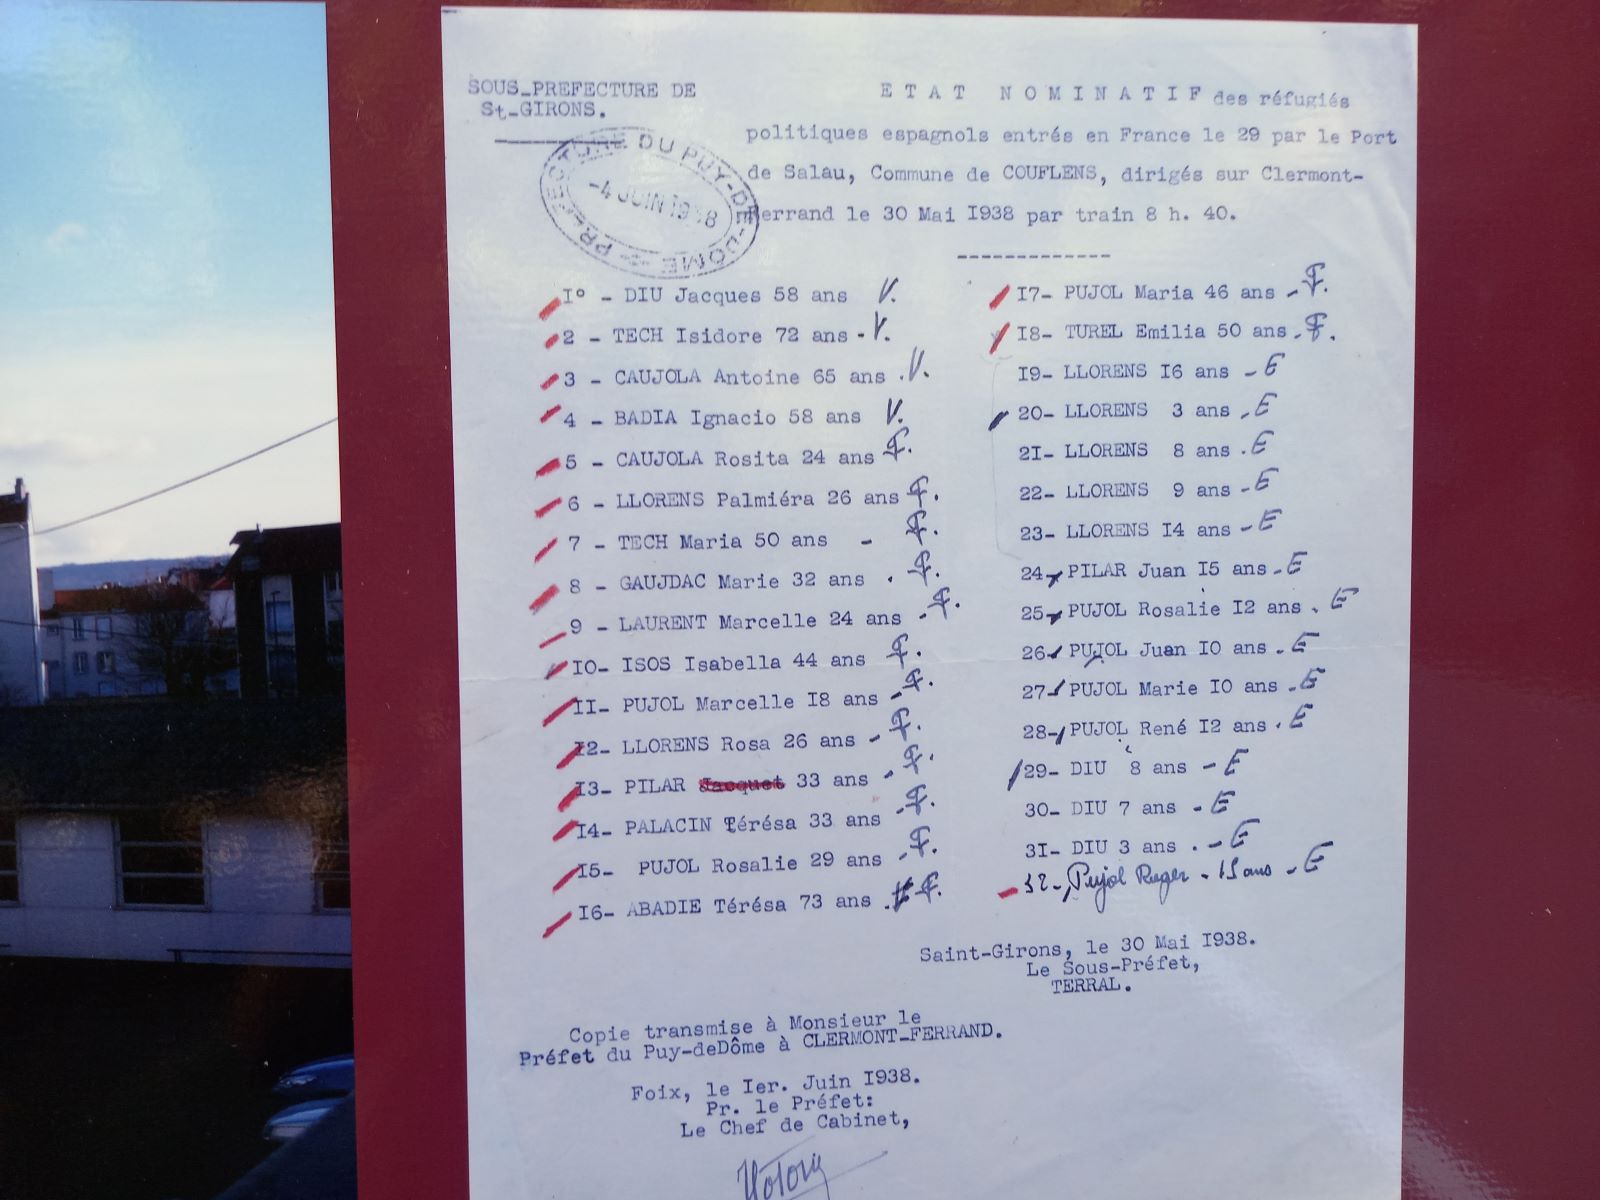 SOUS_PREFECTURE DE
St_GIRONS.
PREFECTURE DU PUY-DE-DOME
-4 JUIN 1938
ETAT NOMINATIF des réfugiés
politiques espagnols entrés en France le 29 par le Port
de Salau, Commune de COUFLENS, dirigés sur Clermont-
Ferrand le 30 Mai I938 par train 8 h. 40.
I° - DIU Jacques 58 ans V.
2 - TECH Isidore 72 ans - V.
3 - CAUJOLA Antoine 65 ans . V.
4 - BADIA Ignacio 58 ans V.
5 - CAUJOLA Rosita 24 ans F.
6 - LLORENS Palmiéra 26 ans F.
7 - TECH Maria 50 ans - F.
8 - GAUJDAC Marie 32 ans . F.
9 - LAURENT Marcelle 24 ans - F.
IO- ISOS Isabella 44 ans F.
II- PUJOL Marcelle I8 ans - F.
I2- LLORENS Rosa 26 ans - F.
I3- PILAR Jacquet 33 ans - F.
I4- PALACIN Térésa 33 ans - F.
I5- PUJOL Rosalie 29 ans - F.
I6- ABADIE Térésa 73 ans . F.
I7- PUJOL Maria 46 ans - F.
I8- TUREL Emilia 50 ans - F.
I9- LLORENS I6 ans - E
20- LLORENS 3 ans - E
2I- LLORENS 8 ans . E
22- LLORENS 9 ans - E
23- LLORENS I4 ans - E
24- PILAR Juan I5 ans - E
25- PUJOL Rosalie I2 ans . E
26- PUJOL Juan IO ans - E
27- PUJOL Marie IO ans - E
28- PUJOL René I2 ans . E
29- DIU 8 ans - E
30- DIU 7 ans - E
3I- DIU 3 ans . - E
32- Pujol Roger - 15 ans - E
Saint-Girons, le 30 Mai I938.
Le Sous-Préfet,
TERRAL.
Copie transmise à Monsieur le
Préfet du Puy-deDôme à CLERMONT_FERRAND.
Foix, le Ier. Juin I938.
Pr. le Préfet:
Le Chef de Cabinet,